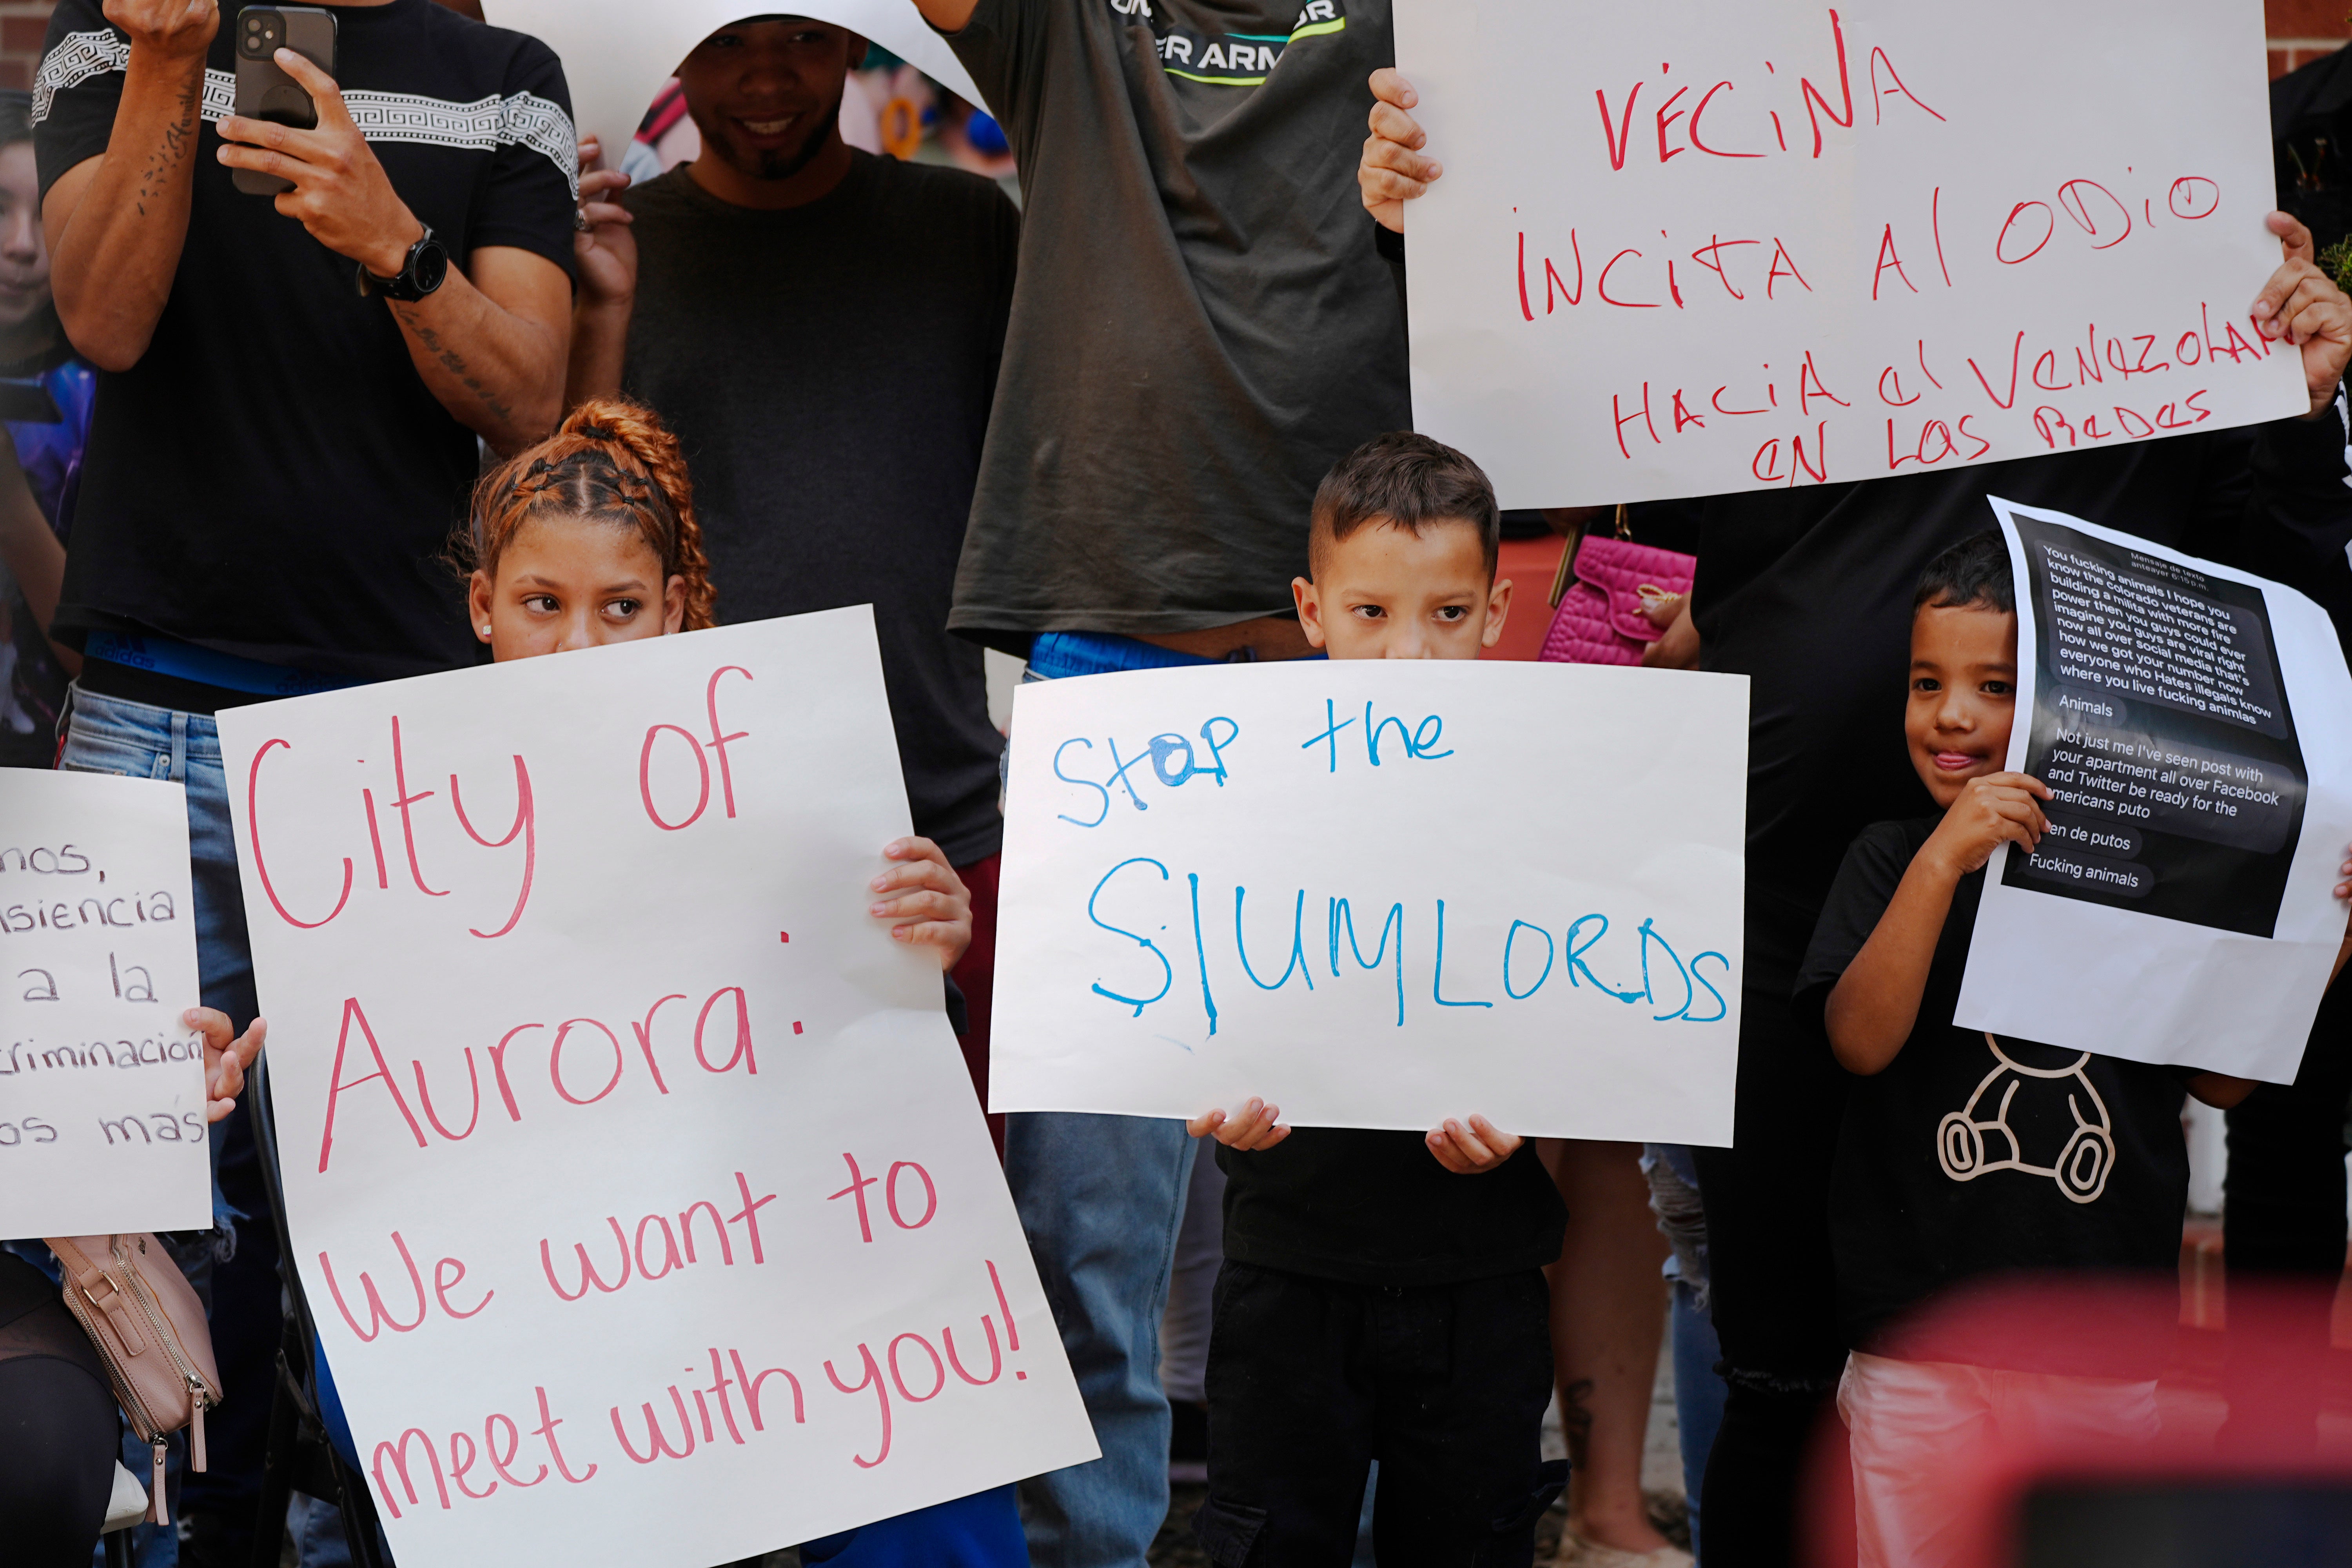 ER ARM
adidas
VECINA
INCITA Al ODIO
HACIA el VeNeZOLAN
eN LAS ReDes
City of
Aurora:
We want to
meet with you!
Stop the
SlUMLORDS
nos,
siencia
a la
criminación
os más
Mensaje de texto
anteayer 6:15 p.m.
You fucking animals I hope you
know the colorado veterans are
building a milita with more fire
power then you guys could ever
imagine you guys are viral right
now all over social media that's
how we got your number now
everyone who Hates illegals know
where you live fucking animlas
Animals
Not just me I've seen post with
your apartment all over Facebook
and Twitter be ready for the
mericans puto
en de putos
Fucking animals